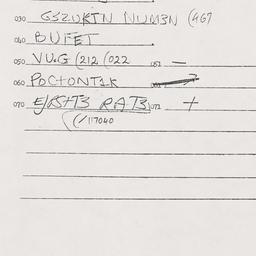 030 GSZUKTN NUMBN (467
040 BUFET
050 VUG (212 (022 051 —
060 POCTONT1K
070 RAT3 071 +
(/117040